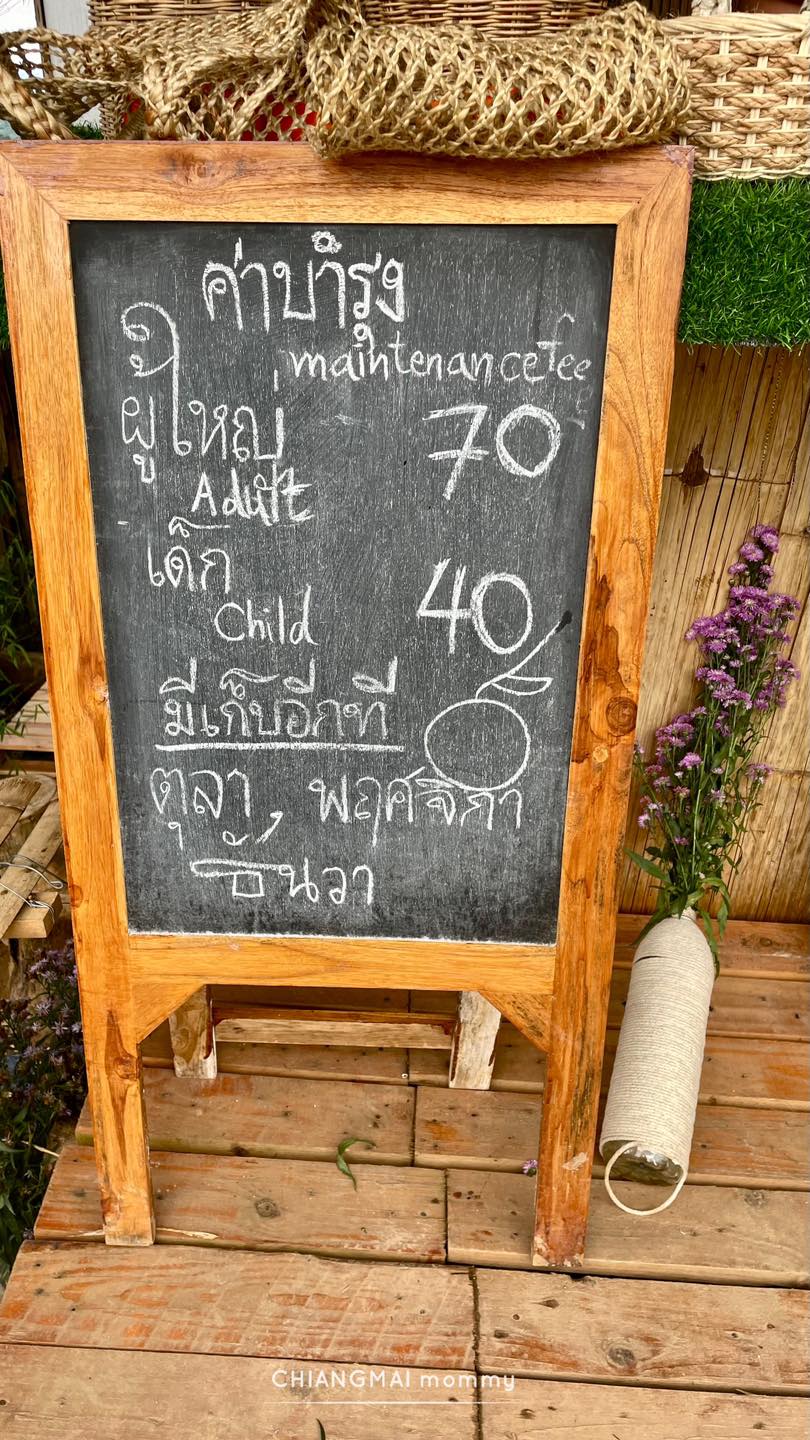 ค่าบำรุง
maintenance fee
ผู้ใหญ่ 70
Adult
เด็ก
Child 40
มีเก็บอีกที
ตุลา, พฤศจิกา
ธันวา
CHIANGMAI mommy